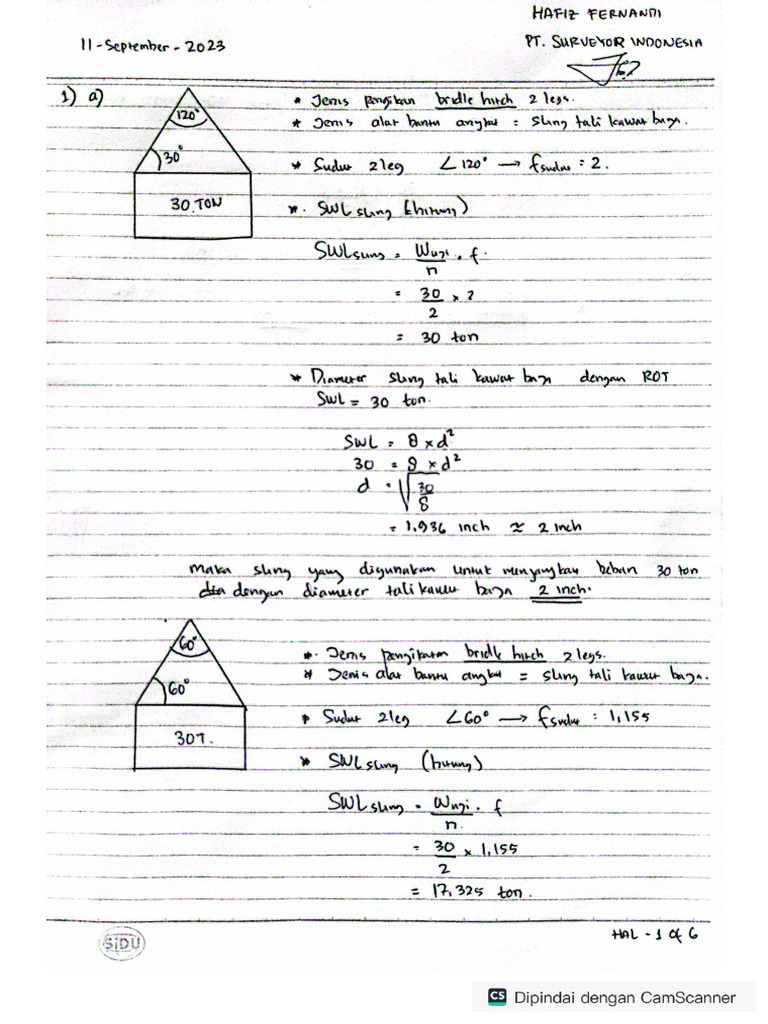 HAFIZ FERNANDI
11 - September - 2023
PT. SURVEYOR INDONESIA
1) a)
120°
30°
30 TON
* Jenis pengikatan bridle hitch 2 legs.
* Jenis alat bantu angkat = sling tali kawat baja.
* Sudut 2 leg ∠120° → fsudut : 2.
*. SWL sling (hitung)
SWL sling = Wuji . f.
n
= 30 x 2
2
= 30 ton
* Diameter sling tali kawat baja dengan ROT
SWL = 30 ton.
SWL = 8 x d²
30 = 8 x d²
d = √30
8
= 1.936 inch ≈ 2 inch
maka sling yang digunakan untuk mengangkat beban 30 ton
dengan diameter tali kawat baja 2 inch.
60°
60°
30T.
*. Jenis pengikatan bridle hitch 2 legs.
* Jenis alat bantu angkat = sling tali kawat baja.
* Sudut 2 leg ∠60° → fsudut : 1,155
* SWL sling (hitung)
SWL sling = Wuji . f
n.
= 30 x 1,155
2
= 17,325 ton.
HAL - 1 of 6
SiDU
CS Dipindai dengan CamScanner